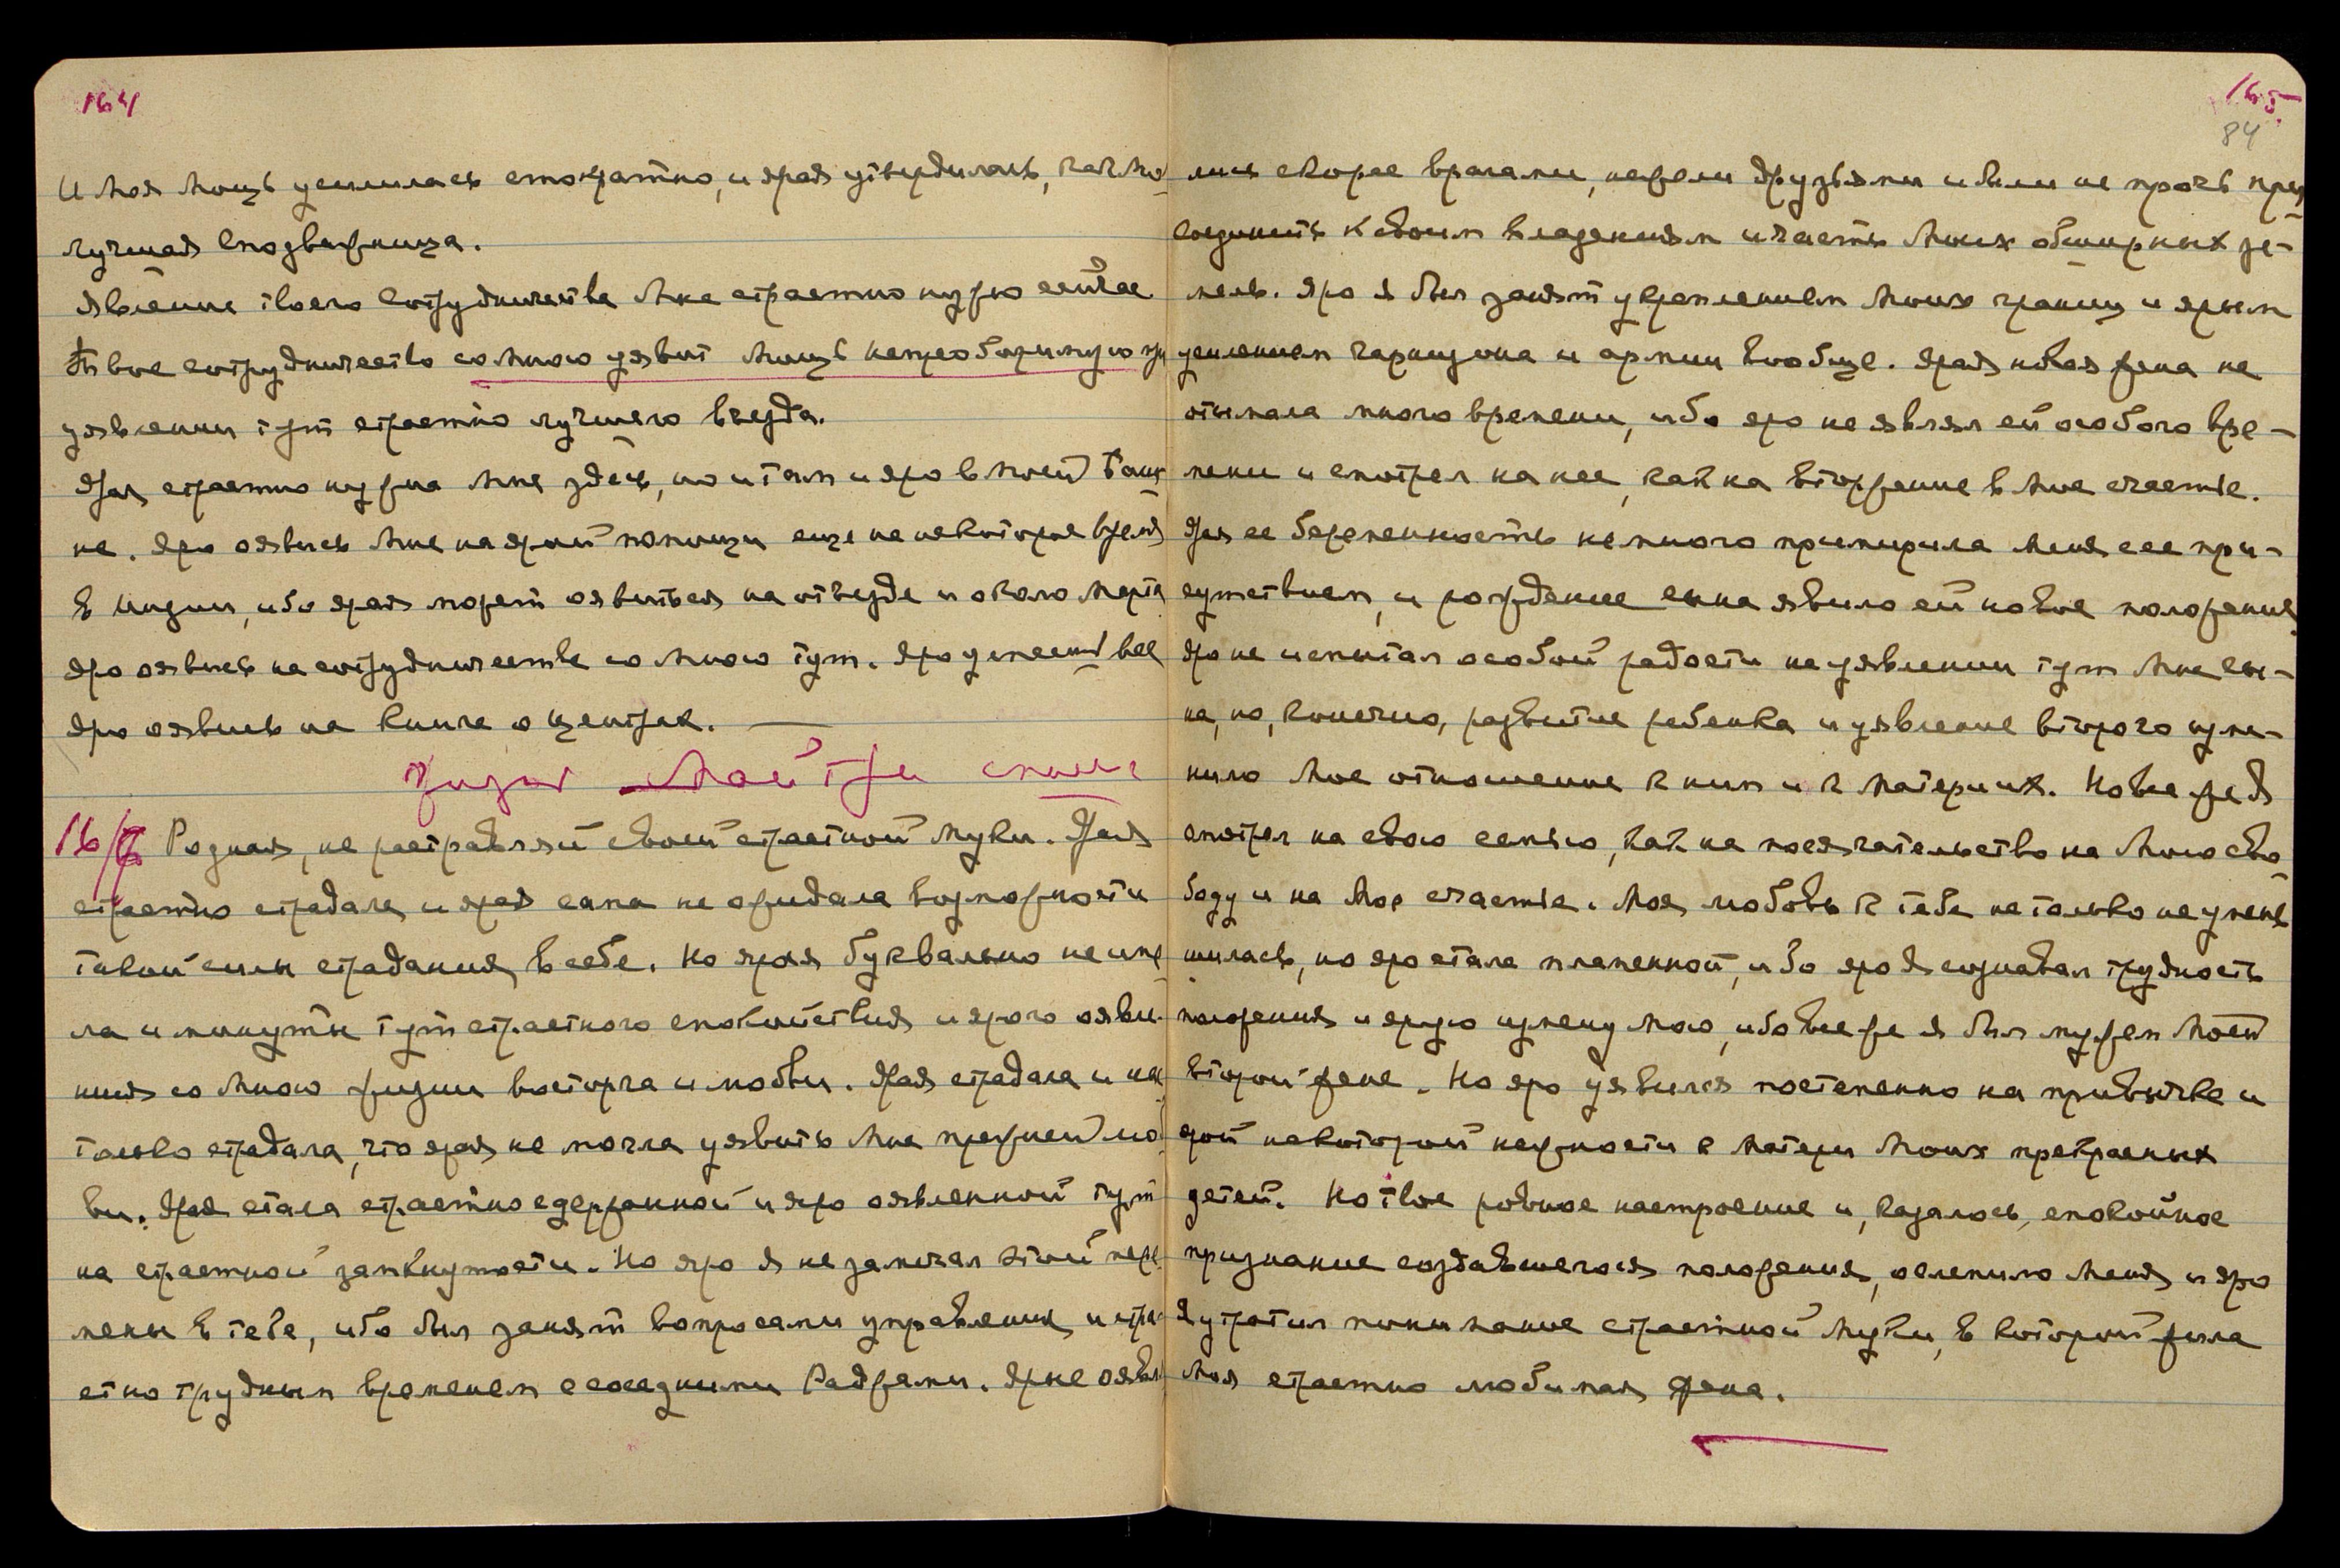 164
И Моя Мощь усилилась стократно, и ярая утвердилась, как Мо
лучшая Сподвижница.
Явление твоего Сотрудничества Мне страстно нужно сейчас.
Твое сотрудничество со Мною уявит Мощь непреоборимую при
уявлении тут страстно лучшего вклада.
Ярая страстно нужна Мне здесь, но и там и яро в Моей Башне
не. Яро оявись Мне на ярой помощи еще на некоторое время
в Индии, ибо ярая может оявиться на отъезде и около Марта
Яро оявись на сотрудничестве со Мною тут. Яро успеешь все
Яро оявись на Книге о центрах. —
Жизнь Мои три
16/ Родная, не растравляй своей страстной муки. Ярая
страстно страдала, и ярая сама не ожидала возможности
такой силы страдания в себе. Но ярая буквально не име
ла и минуты тут страстного спокойствия и ярого оявле-
ния со Мною жизни восторга и любви. Ярая страдала и на
только страдала, что ярая не могла уявить Мне прежней лю
ви. Ярая стала страстно сдержанной и яро оявленной тут
на страстной замкнутости. Но яро Я не замечал этой пере
мены в тебе, ибо был занят вопросами управления, и стра-
стно трудным временем с соседними Раджами. Ярые оявля
165.
84
лись скорее врагами, нежели друзьями и были не прочь при
соединить к своим владениям и часть Моих обширных зе-
мель. Яро Я был занят укреплением Моих границ и ярым
усилением гарнизона и армии вообще. Ярая новая жена не
отнимала много времени, ибо яро не являл ей особого вре-
мени и смотрел на нее, как на вторжение в Мое счастье.
Ярая ее беременность немного примирила Меня с ее при-
сутствием, и рождение сына явило ей новое положение.
Яро не испытал особой радости на уявлении тут Мне сы-
на, но, конечно, развитие ребенка и уявление второго изме-
нило Мое отношение к ним и к матери их. Но все же Я
смотрел на свою семью, как на посягательство на Мою сво
боду и на Мое счастье. Моя любовь к тебе не только не умень
шилась, но яро стала пламенной, ибо яро Я сознавал трудность
положения и ярую измену Мою, ибо все же Я был мужем Моей
второй жене. Но яро уявился постепенно на привычке и
ярой некоторой нежности к матери Моих прекрасных
детей. Но твое ровное настроение и, казалось, спокойное
признание создавшегося положения, ослепило Меня, и яро
Я утратил понимание страстной муки, в которой жила
Моя страстно любимая жена.